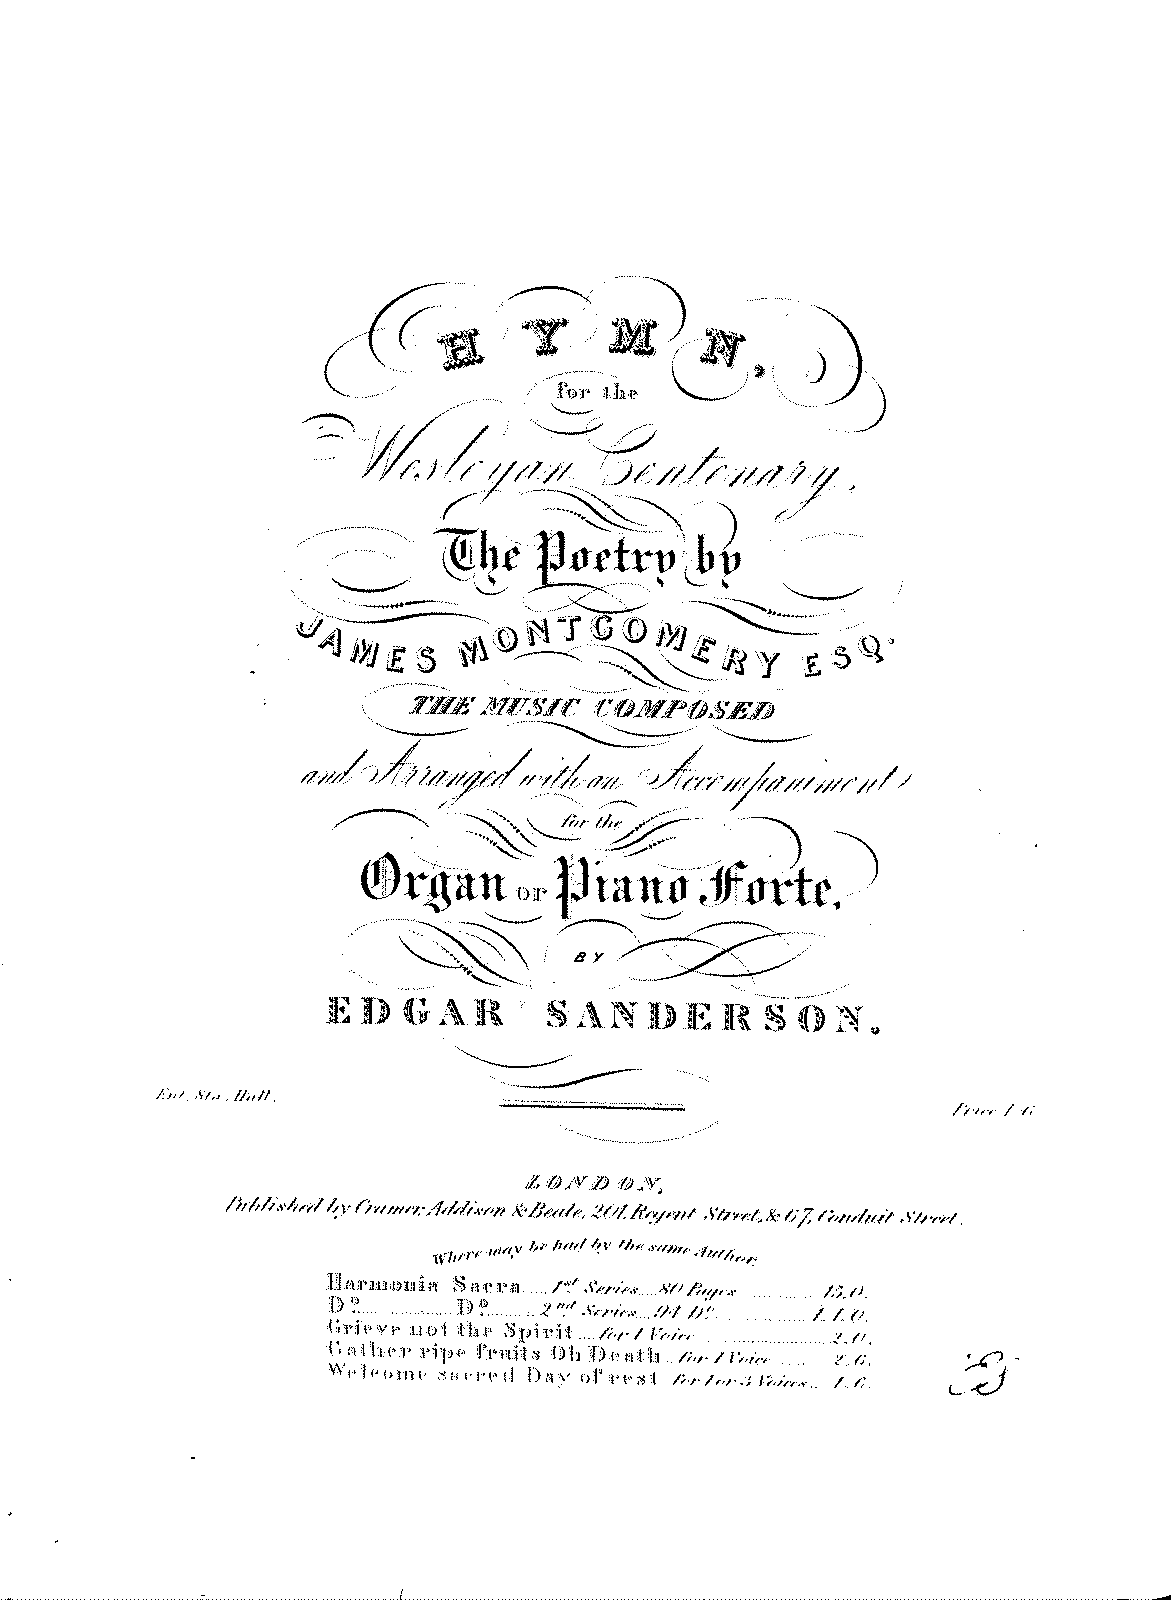 HYMN,
for the
Wesleyan Centenary,
The Poetry by
JAMES MONTGOMERY ESQ.
THE MUSIC COMPOSED
and Arranged with an Accompaniment,
for the
Organ or Piano Forte,
BY
EDGAR SANDERSON.
Ent. Sta. Hall.
Price 1/6
LONDON,
Published by Cramer, Addison & Beale, 201, Regent Street, & 67, Conduit Street.
Where may be had by the same Author,
Harmonia Sacra 1st Series 80 Pages 15.0.
Do Do 2nd Series 94 Do 1.1.0.
Grieve not the Spirit for 1 Voice 2.0.
Gather ripe fruits Oh Death for 1 Voice 2.6.
Welcome sacred Day of rest for 1 or 3 Voices 1.6.